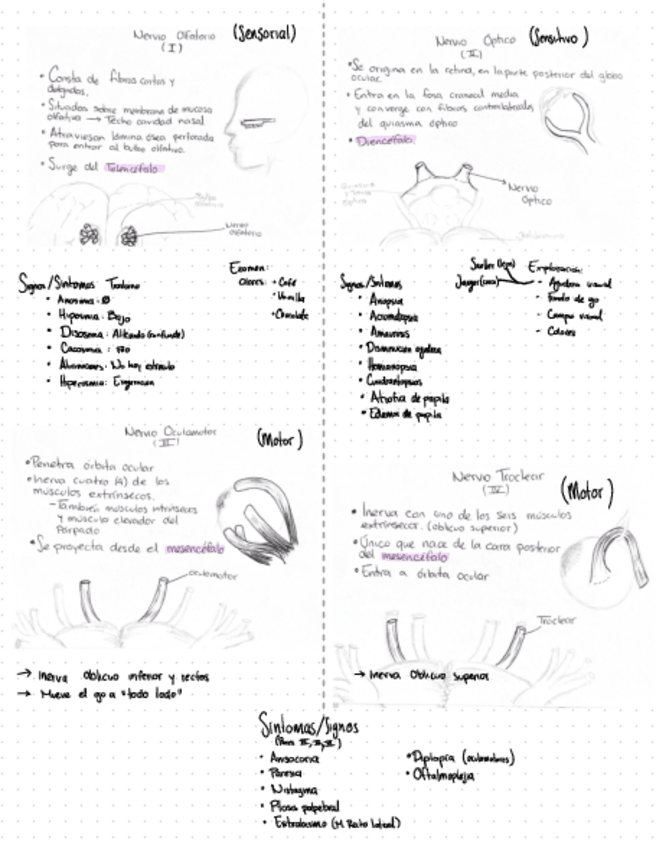 Nervio Olfatorio (Sensorial)
(I)
• Consta de fibras cortas y
delgadas.
• Situadas sobre membrana de mucosa
olfativa → Techo cavidad nasal
• Atraviesan lámina ósea perforada
para entrar al bulbo olfativo.
• Surge del Telencéfalo
Nervio
Olfatorio
Signos/Síntomas Trastorno
• Anosmia: Ø
• Hiposmia: Bajo
• Disosmia: Alterado (confunde)
• Cacosmia:
• No hay estímulo
• Hiperosmia:
Examen:
Olores: • Café
• Vainilla
• Chocolate
Nervio Óptico (Sensitivo)
(II)
• Se origina en la retina, en la parte posterior del globo
ocular.
• Entra en la fosa craneal media
y converge con fibras contralaterales
del quiasma óptico
• Diencéfalo
Nervio
Óptico
Signos/Síntomas
• Anopsia
• Acromatopsia
• Amaurosis
• Disminución agudeza
• Hemianopsia
• Cuadrantopsias
• Atrofia de papila
• Edema de papila
Exploración:
- Agudeza visual
- Fondo de ojo
- Campo visual
- Colores
Nervio Oculomotor (Motor)
(III)
• Penetra órbita ocular
• Inerva cuatro (4) de los
músculos extrínsecos.
- También músculos intrínsecos
y músculo elevador del
párpado
• Se proyecta desde el mesencéfalo
oculomotor
→ Inerva Oblicuo inferior y rectos
→ Mueve el ojo a "todo lado"
Nervo Troclear (Motor)
(IV)
• Inerva con uno de los seis músculos
extrínsecos. (oblicuo superior)
• Único que nace de la cara posterior
del mesencéfalo
• Entra a órbita ocular
Troclear
→ Inerva Oblicuo superior
Síntomas/Signos
• Anisocoria
• Paresia
• Nistagmo
• Ptosis palpebral
• Estrabismo (M. Recto lateral)
• Diplopía (oculomotores)
• Oftalmoplejia